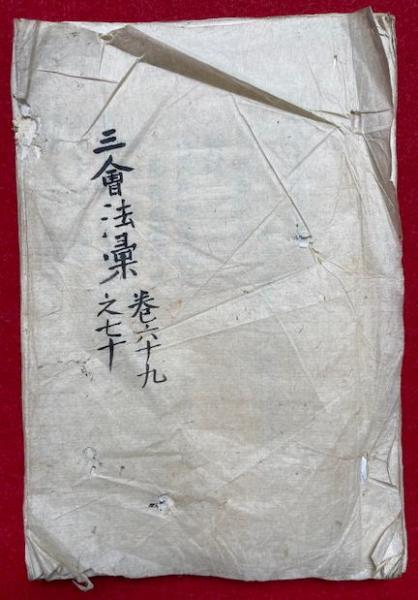 三會法彙
卷六十九
之七十